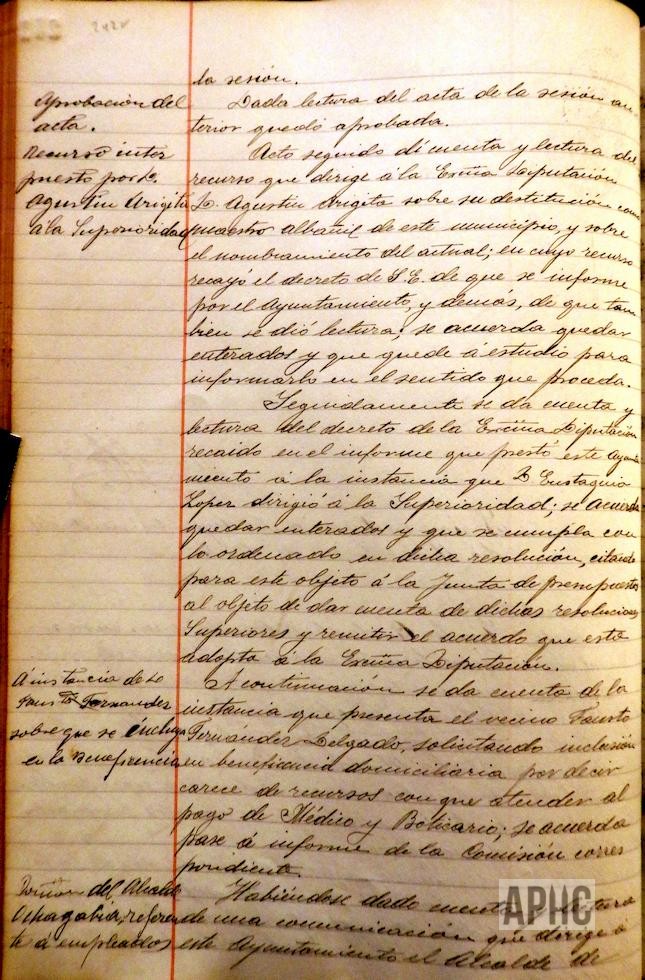 242v
la sesión.
Aprobación del
acta.
Dada lectura del acta de la sesión an
terior quedó aprobada.
Recurso inter
puesto por D.
Agustin Arigita
á la Superioridad
Acto seguido dí cuenta y lectura del
recurso que dirige á la Excma Diputación
D. Agustin Arigita sobre su destitución como
maestro albañil de este municipio, y sobre
el nombramiento del actual; en cuyo recurso
recayó el decreto de S.E. de que se informe
por el Ayuntamiento, y demás, de que tam
bien se dió lectura; se acuerda quedar
enterados y que quede á estudio para
informarlo en el sentido que proceda.
Seguidamente se da cuenta y
lectura del decreto de la Excma Diputación
recaido en el informe que prestó este Ayunta
miento á la instancia que D Eustaquio
Lopez dirigió á la Superioridad; se acuerda
quedar enterados y que se cumpla con
lo ordenado en dicha resolución, citando
para este objeto á la Junta de presupuestos
al objeto de dar cuenta de dichas resoluciones
Superiores y remitir el acuerdo que esta
adopta á la Excma Diputación.
A instancia de
Fausto Fernandez
sobre que se incluya
en la Beneficencia
A continuación se da cuenta de la
instancia que presenta el vecino Fausto
Fernandez Delgado, solicitando inclusión
en beneficencia domiciliaria por decir
carece de recursos con que atender al
pago de Médico y Boticario; se acuerda
pase á informe de la Comisión corres
pondiente.
del Alcalde
Ochagabia, referen
te á empleados
Habiéndose dado cuenta y lectura
de una comunicación que dirige á
este Ayuntamiento el Alcalde de
APHC